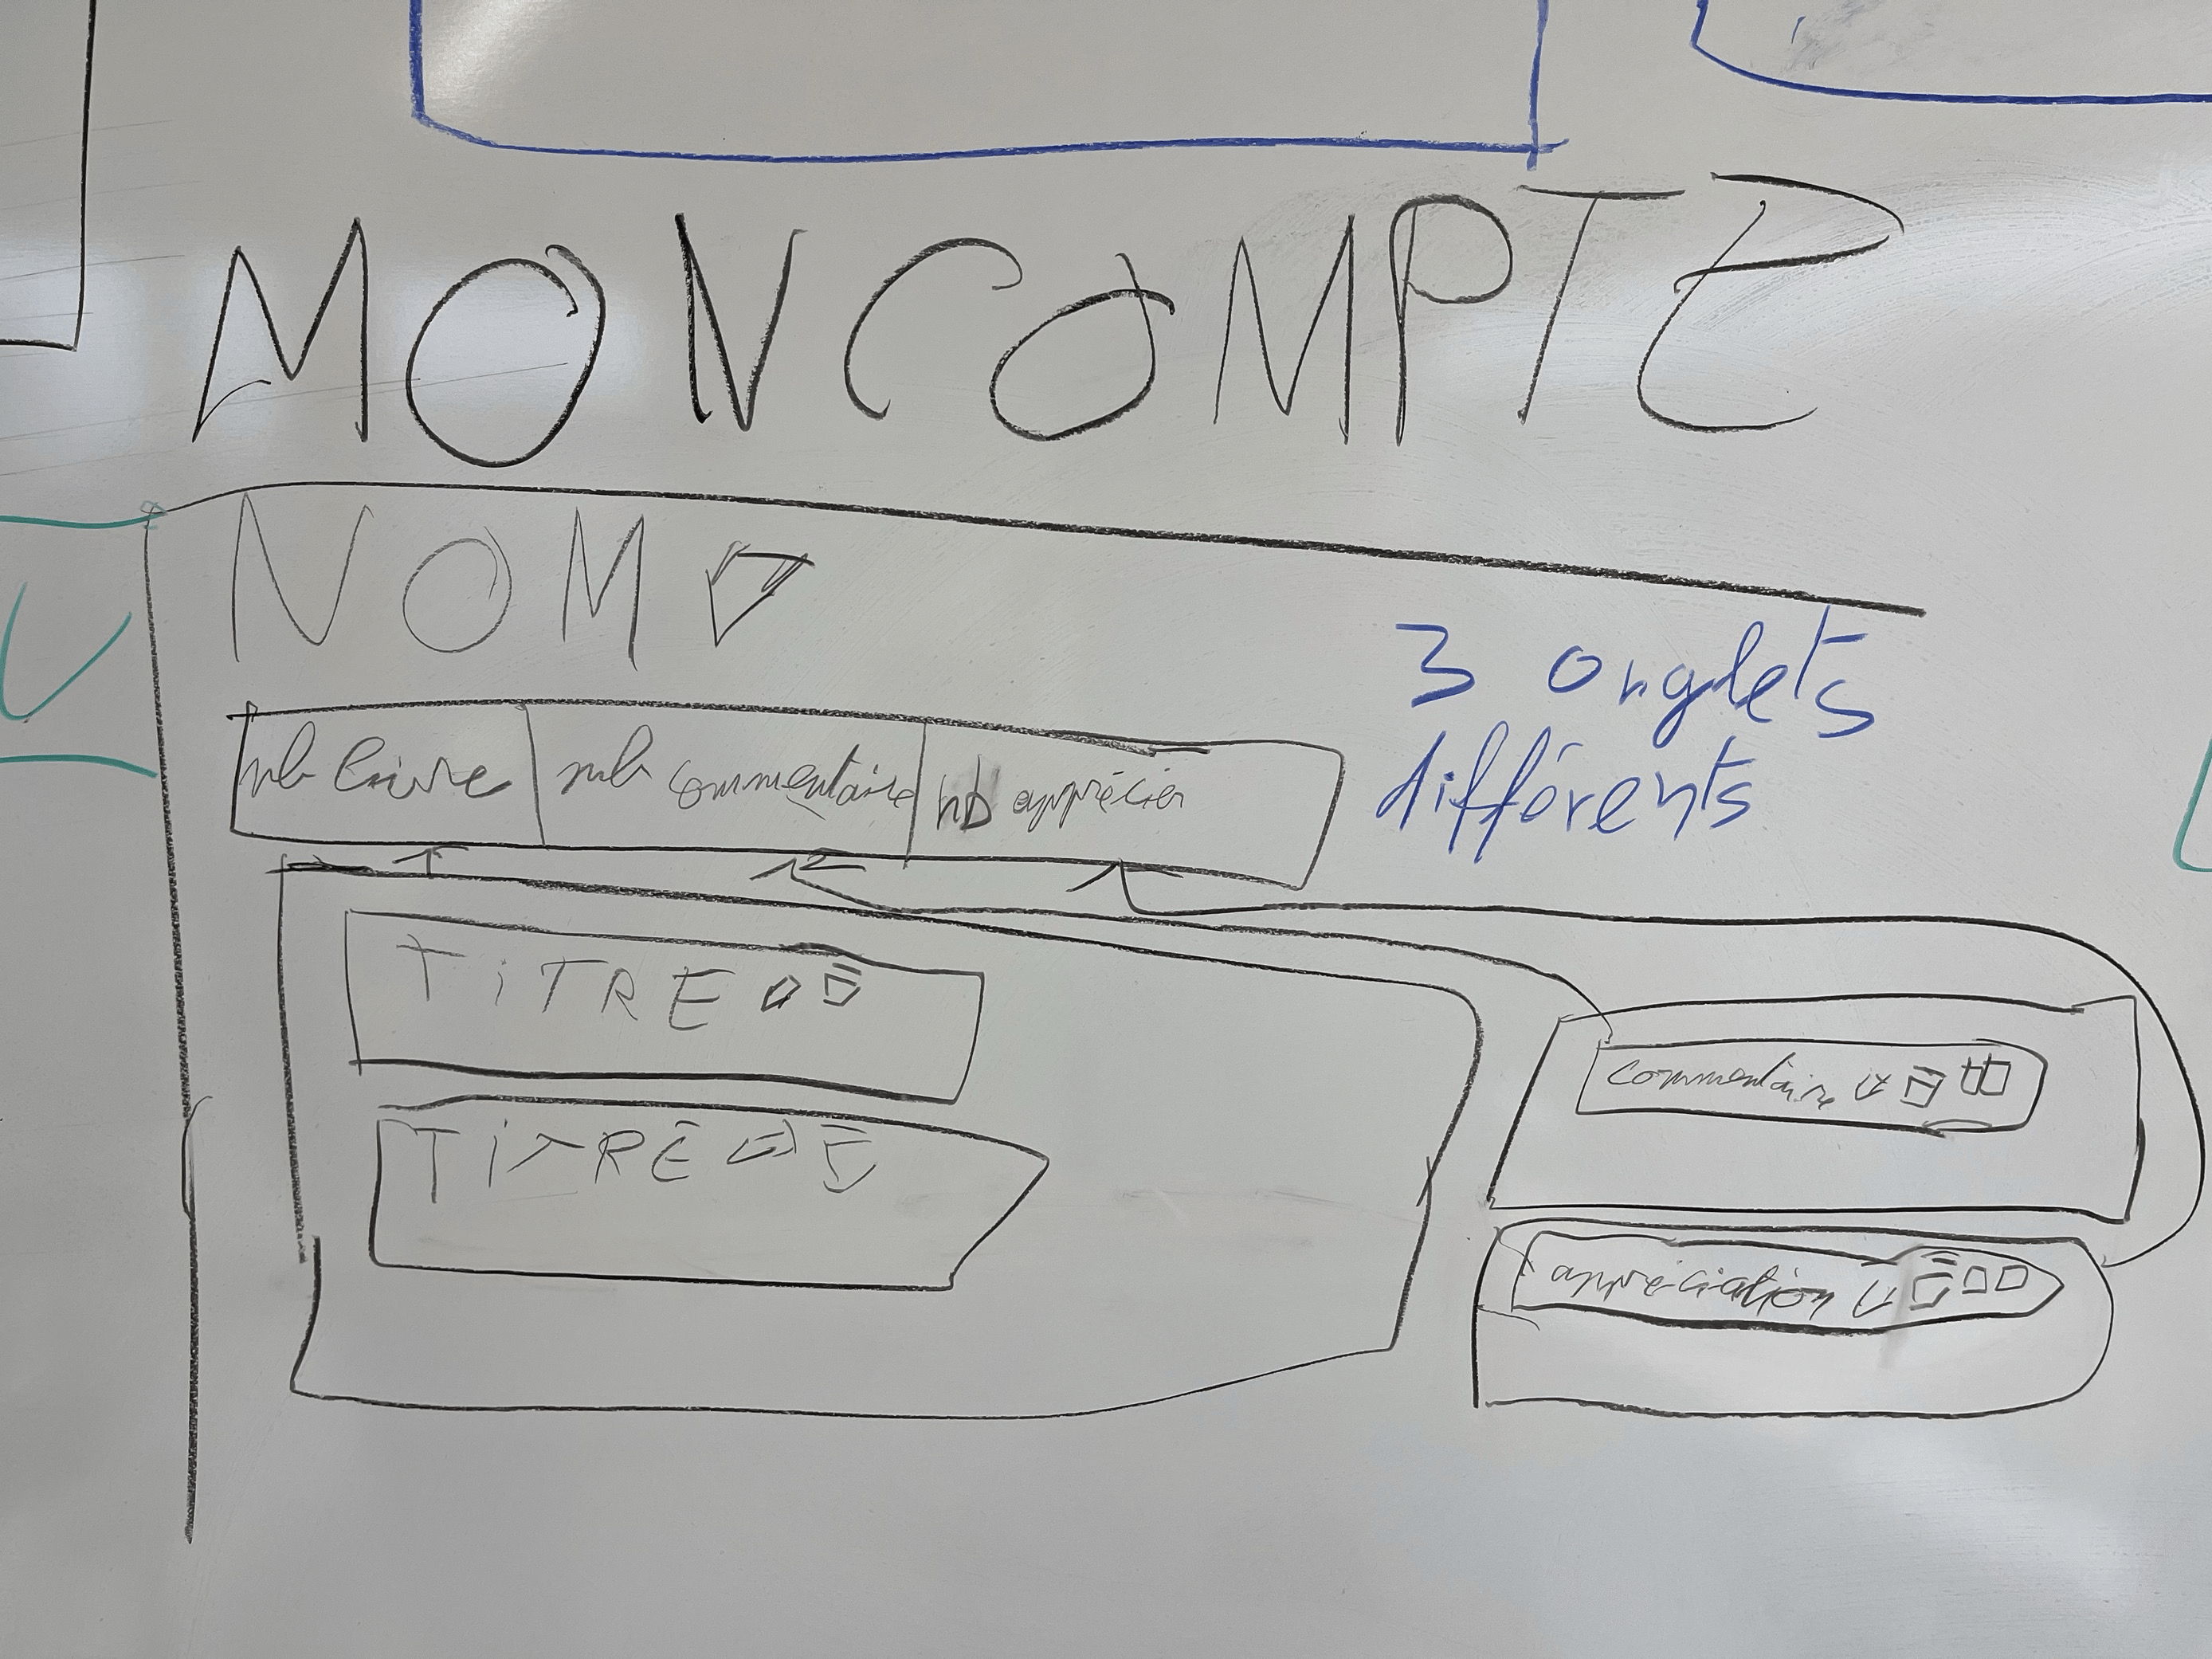 MON COMPTE
NOM
3 onglets
différents
nb livre
nb commentaire
nb apprécier
TiTRE
TiTRE
commentaire
appréciation